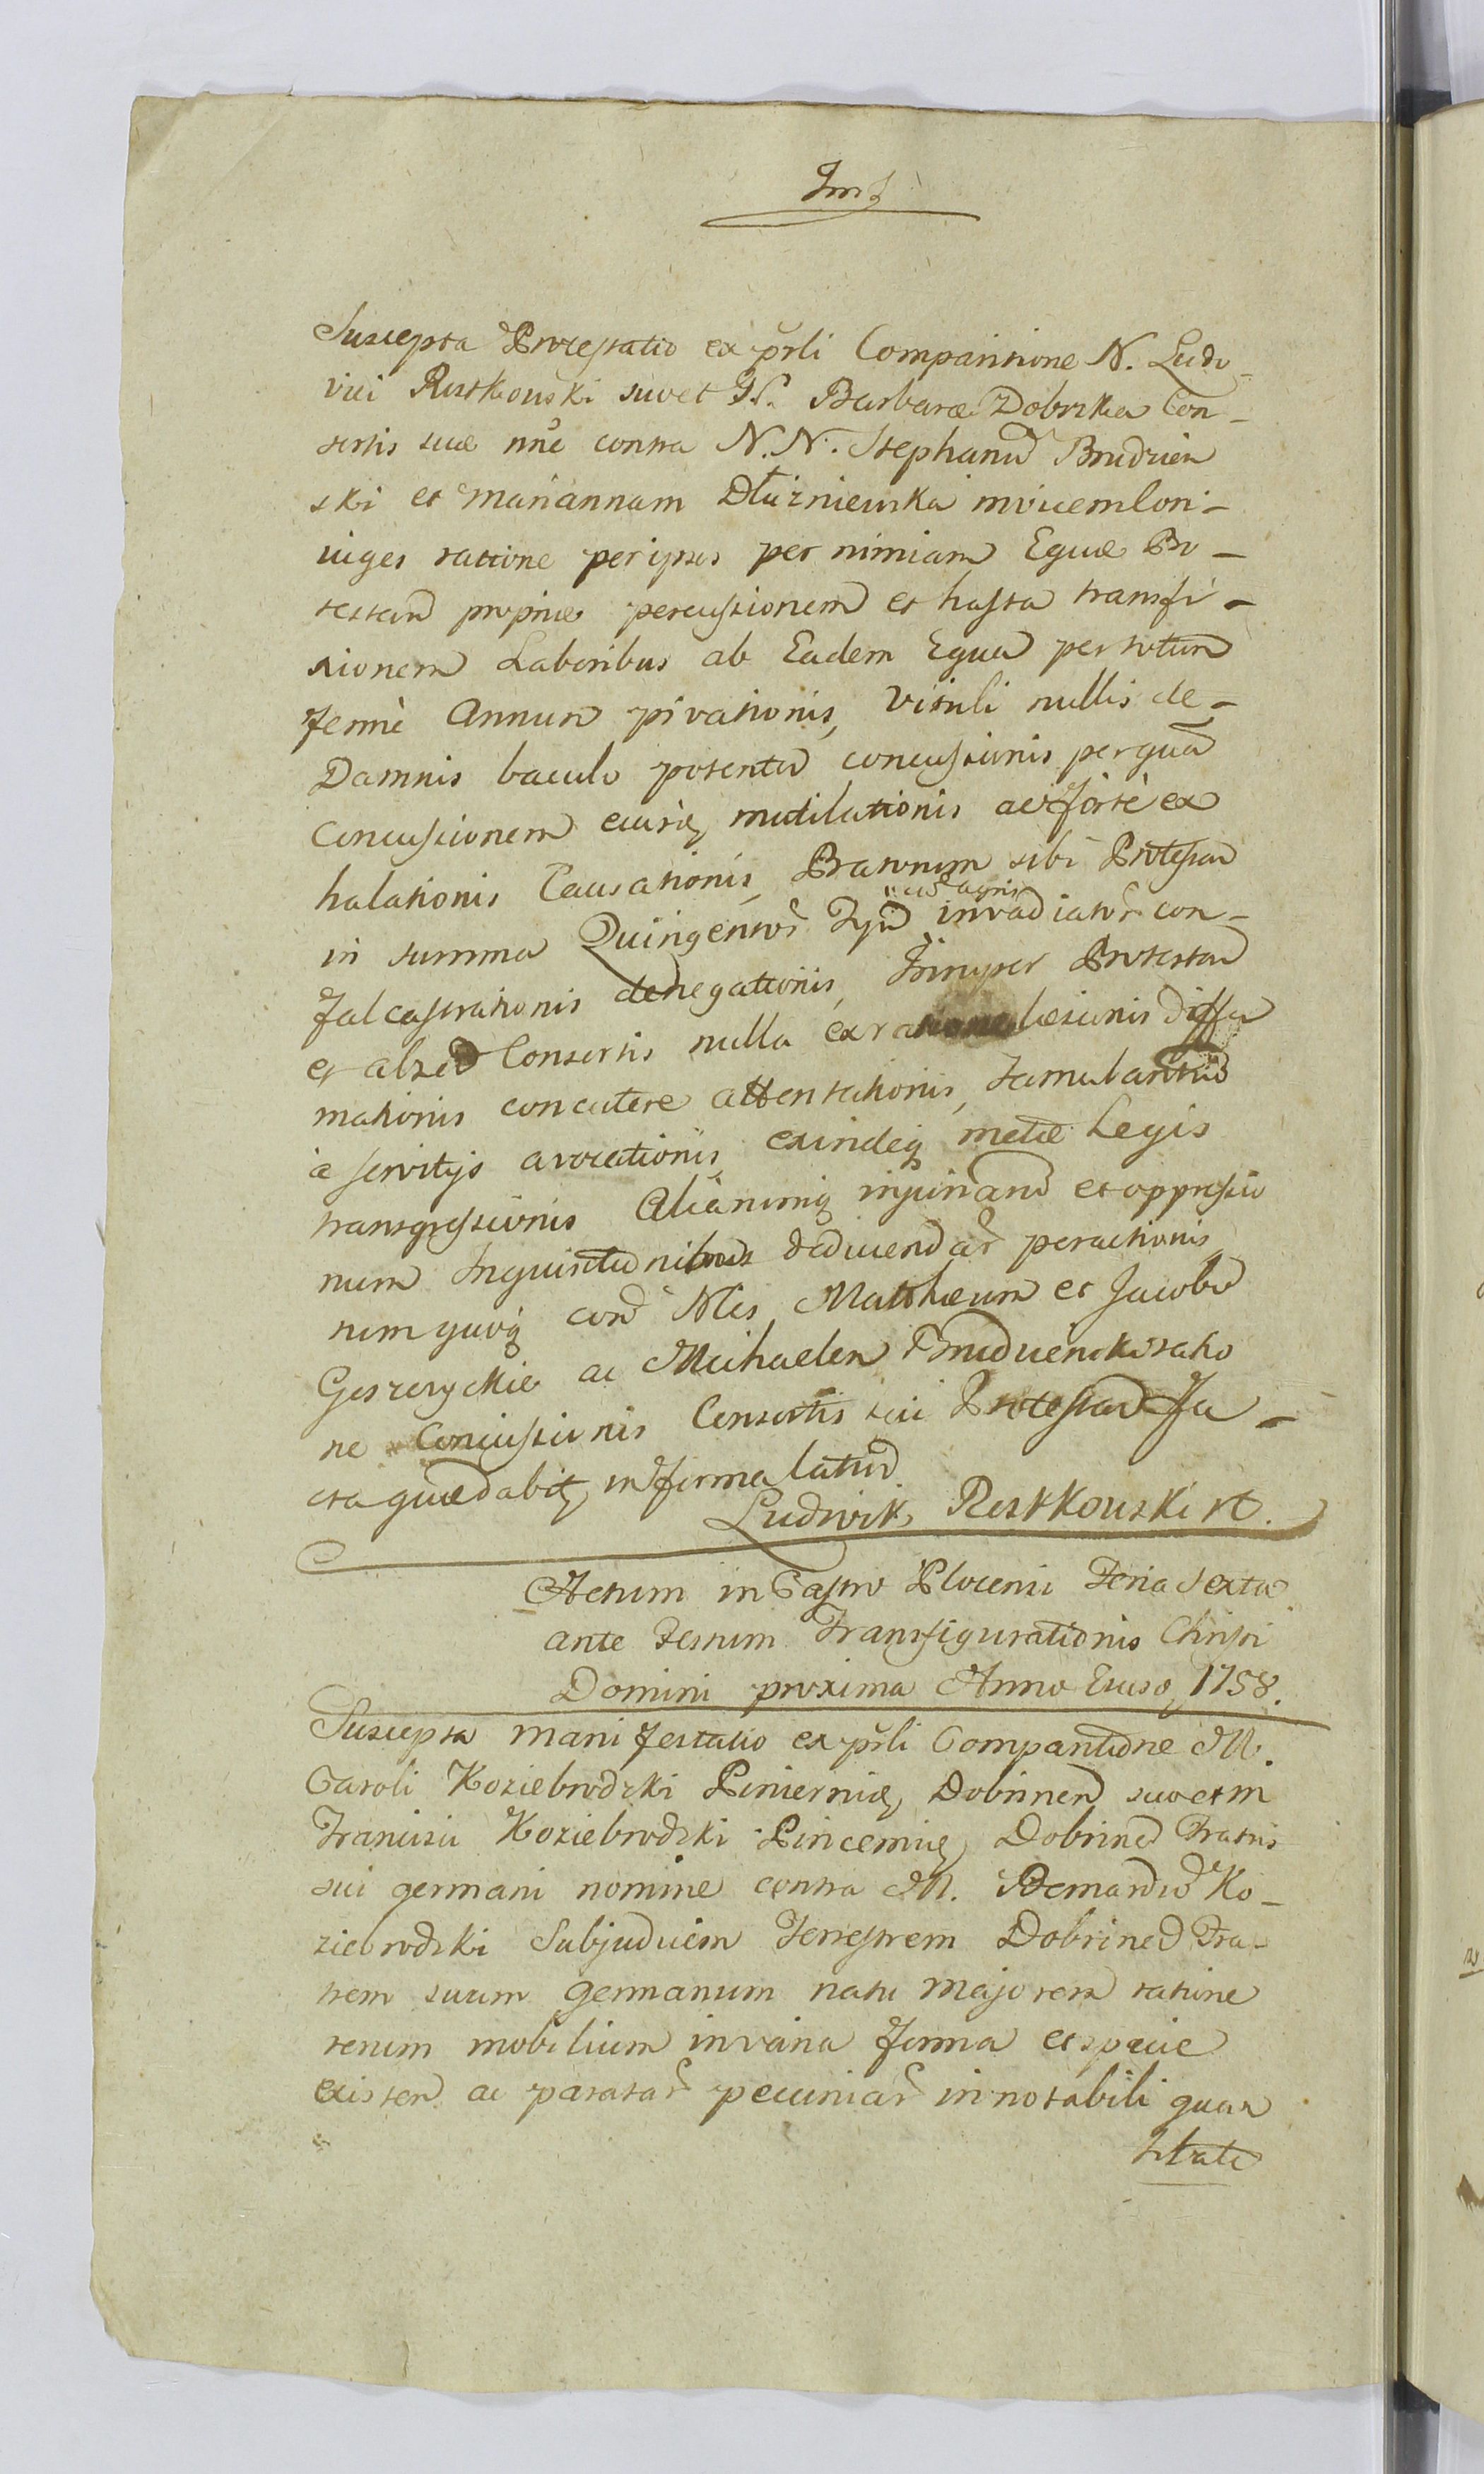 Suscepta Protestatio ex prsli Comparitione N. Ludo-
vici Rostkowski suo et N. Barbaræ Dobrska Con-
sortis suæ nne contra N. N. Stephanu Brudzien
ski et Mariannam Dłużniewska invicem Con-
iuges ratione per ipsos per nimiam Equæ Pro-
testan propriæ percussionem et hasta transfi-
xionem Laboribus ab Eadem Equa per totum
ferme Annum privationis, Vituli nullis de
Damnis baculo potenter concussionis per quā
Concussionem eiusq mutilationis ac forte ex
halationis Causationis, Pratorum sibi Protestan
cu agris
in summa Quingentor Tyn invadiator con-
falcastrationis denegationis, Insuper Protestan
et Consortis nulla ex ratione læsionis diffa
mationis concutere attentationis, famulantiu
a servitijs avocationis exindeq metæ Legis
transgressionis Aliarumq injuriaru et oppressio
num Inquisitionibus deducendar peractionis
tum quoq con Nles Matthæum et Jacobu
ac Michaelem Brudzienski ratio
ne Concussionis Consortis sui Protestan Fa-
cta quæ dabit, in forma latiu.
Ludwik Rostkowski
Actum in Castro Plocensi Feria Sexta
ante Festum Transfigurationis Christi
Domini proxima Anno Eius 1758.
Suscepta Manifestatio ex prsli Comparitione M.
Caroli Koziebrodzki Pincernid, Dobrinen suo et M
Francisci Koziebrodzki Pincernid, Dobrinen Fratris
sui germani nomine contra M. Bernardu Ko-
ziebrodzki Subjudicem Terrestrem Dobrinen Fra-
trem suum germanum natu majorem ratione
rerum mobilium in varia forma et specie
existen ac paratar pecuniar in notabili quan
titate